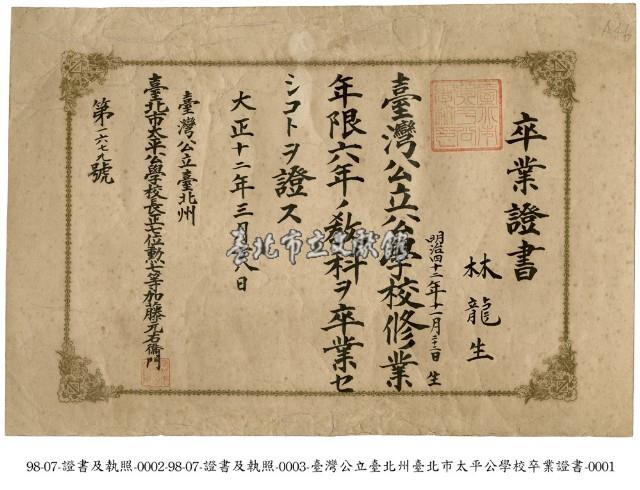 卒業證書
林龍生
明治四十二年十一月二十三日生
臺灣公立公學校修業
年限六年ノ教科ヲ卒業セ
シコトヲ證ス
大正十二年三月 日
臺灣公立臺北州
臺北市太平公學校長正七位勲七等加藤元右衞門
第一六七九號
臺北市立文獻館
98-07-證書及執照-0002-98-07-證書及執照-0003-臺灣公立臺北州臺北市太平公學校卒業證書-0001